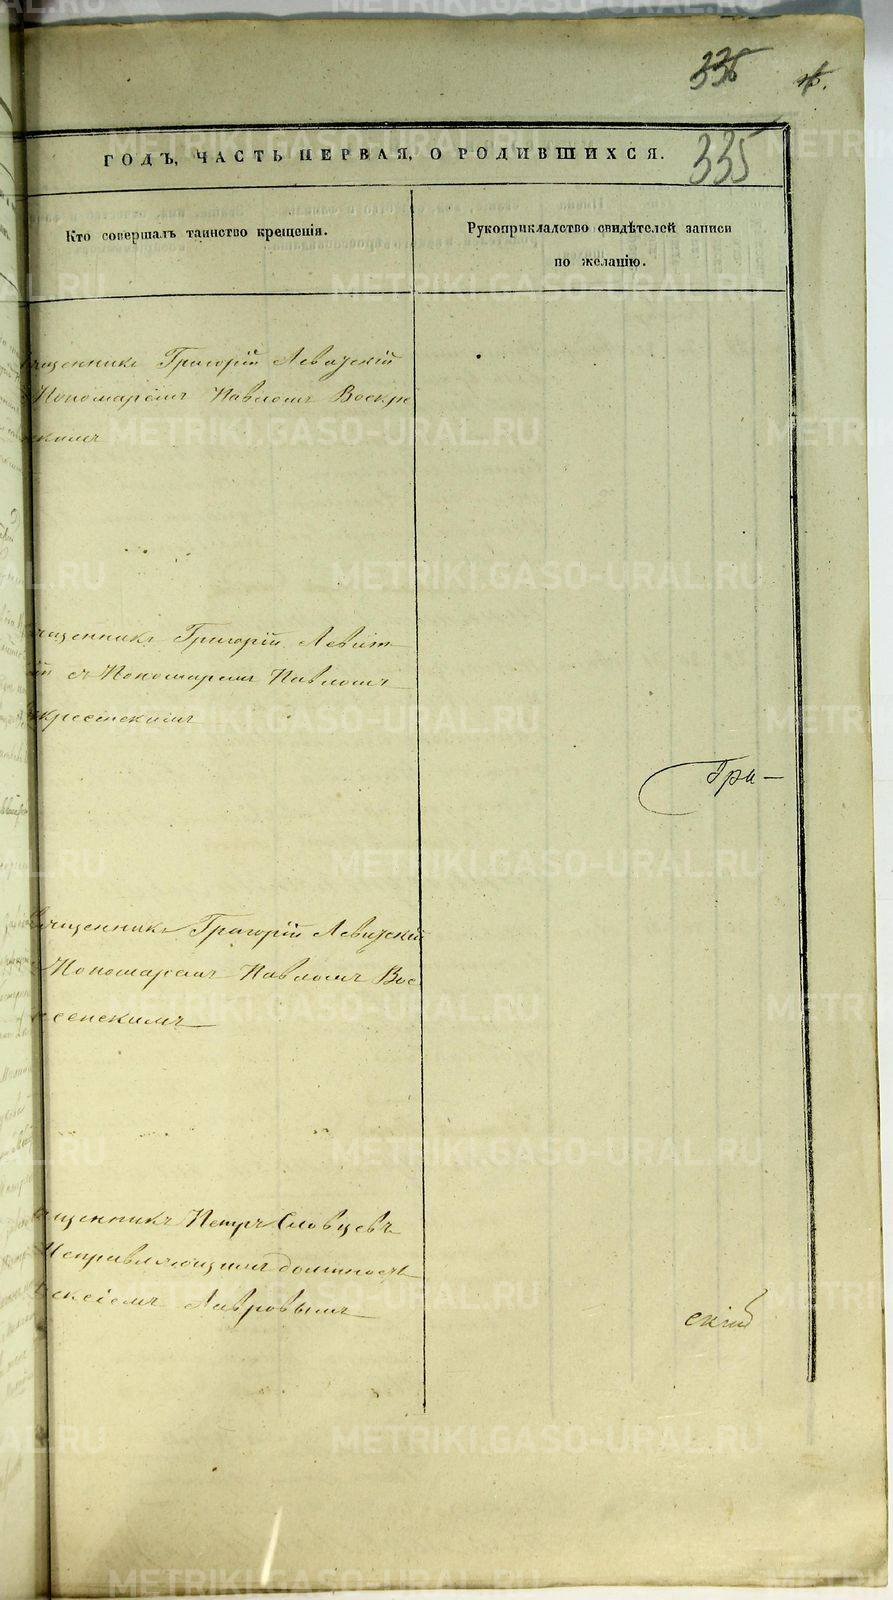 336
ГОДЪ, ЧАСТЬ ПЕРВАЯ, О РОДИВШИХСЯ.
335
Кто совершалъ таинство крещенія.
Рукоприкладство свидѣтелей записи
по желанію.
щенникъ Григорій Левитскій
Пономаремъ Павломъ Воскре
скимъ
щенникъ Григорій Левит
ій съ Пономаремъ Павломъ
кресенскимъ
Гри-
щенникъ Григорій Левитскій
Пономаремъ Павломъ Вос
сенскимъ
щенникъ Петръ Словцевъ
Исправляющимъ должность
ексіемъ Лавровымъ
скій
METRIKI.GASO-URAL.RU